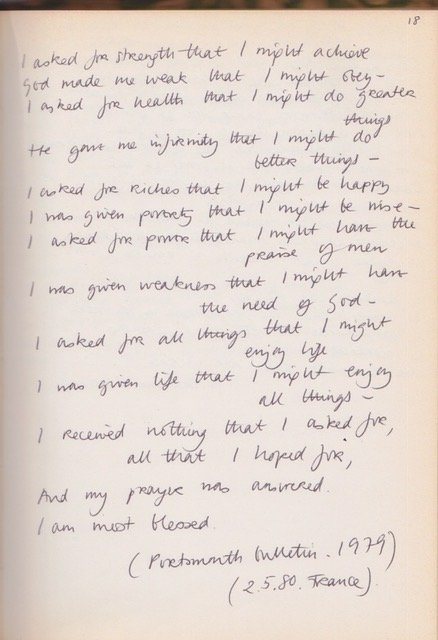 18
I asked for strength that I might achieve
God made me weak that I might obey –
I asked for health that I might do greater
things
He gave me infirmity that I might do
better things –
I asked for riches that I might be happy
I was given poverty that I might be wise –
I asked for power that I might have the
praise of men
I was given weakness that I might have
the need of God –
I asked for all things that I might
enjoy life
I was given life that I might enjoy
all things –
I received nothing that I asked for,
all that I hoped for,
And my prayer was answered.
I am most blessed.
(Portsmouth bulletin. 1979)
(2.5.80. France)